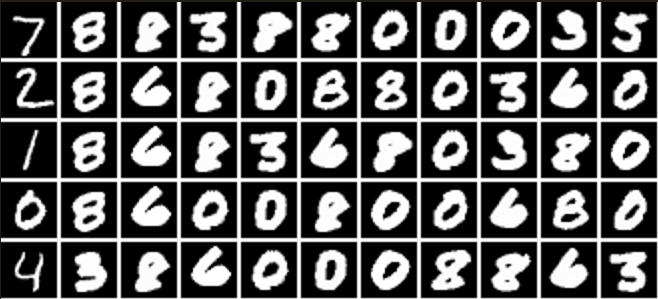 7 8 8 3 8 8 0 0 0 3 5
2 8 6 8 0 8 8 0 3 6 0
1 8 6 8 3 6 8 0 3 8 0
0 8 6 0 0 8 0 0 6 8 0
4 3 8 6 0 0 0 8 8 6 3